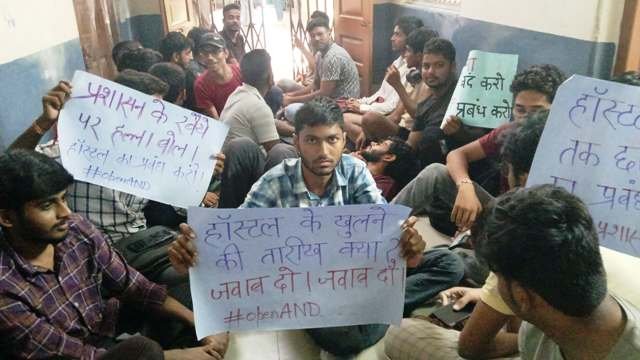 प्रशासन के रवैये
पर हल्ला बोल।
हॉस्टल का प्रबंध करो।
#openAND
हॉस्टल के खुलने
की तारीख क्या है
जवाब दो। जवाब दो।
#openAND
करो
प्रबंध करो
हॉस्टल
तक
प्रबंध